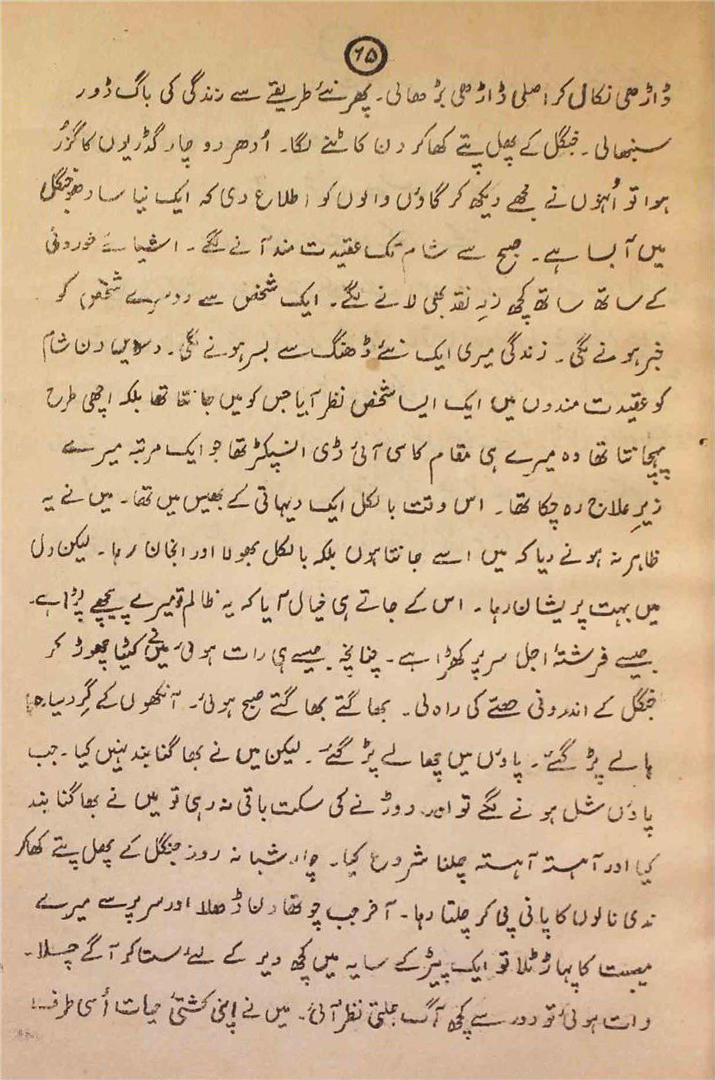 ۶۵
ڈاڑھی نکال کر اصلی ڈاڑھی بڑھالی۔ پھر نئے طریقے سے زندگی کی باگ ڈور
سنبھالی۔ جنگل کے پھل پتے کھا کر دن کاٹنے لگا۔ اُدھر دو چار گڈریوں کا گزر
ہوا تو اُنہوں نے مجھے دیکھ کر گاؤں والوں کو اطلاع دی کہ ایک نیا سادھو جنگل
میں آبسا ہے۔ صبح سے شام تک عقیدت مند آنے لگے۔ اشیائے خوردنی
کے ساتھ ساتھ کچھ زرِ نقد بھی لانے لگے۔ ایک شخص سے دوسرے شخص کو
خبر ہونے لگی۔ زندگی میری ایک نئے ڈھنگ سے بسر ہونے لگی۔ دسویں دن شام
کو عقیدت مندوں میں ایک ایسا شخص نظر آیا جس کو میں جانتا تھا بلکہ اچھی طرح
پہچانتا تھا وہ میرے ہی مقام کا سی آئی ڈی انسپکٹر تھا جو ایک مرتبہ میرے
زیرِ علاج رہ چکا تھا۔ اس وقت بالکل ایک دیہاتی کے بھیس میں تھا۔ میں نے یہ
ظاہر نہ ہونے دیا کہ میں اسے جانتا ہوں بلکہ بالکل بھولا اور انجان رہا۔ لیکن دل
میں بہت پریشان رہا۔ اس کے جاتے ہی خیال آیا کہ یہ ظالم تو میرے پیچھے پڑا ہے۔
جیسے فرشتۂ اجل سر پر کھڑا ہے۔ چنانچہ جیسے ہی رات ہوئی میں نے کٹیا چھوڑ کر
جنگل کے اندرونی حصے کی راہ لی۔ بھاگتے بھاگتے صبح ہوئی۔ آنکھوں کے گرد سیاہ
ہالے پڑ گئے۔ پاؤں میں چھالے پڑ گئے۔ لیکن میں نے بھاگنا بند نہیں کیا۔ جب
پاؤں شل ہونے لگے تو اور دوڑنے کی سکت باقی نہ رہی تو میں نے بھاگنا بند
کیا اور آہستہ آہستہ چلنا شروع کیا۔ چار شبانہ روز جنگل کے پھل پتے کھا کر
ندی نالوں کا پانی پی کر چلتا رہا۔ آخر جب چوتھا دن ڈھلا اور سر پر سے میرے
مصیبت کا پہاڑ ٹلا تو ایک پیڑ کے سایہ میں کچھ دیر کے لئے سستا کر آگے چلا۔
رات ہوئی تو دور سے کچھ آگ جلتی نظر آئی۔ میں نے اپنی کشتئ حیات اُسی طرف